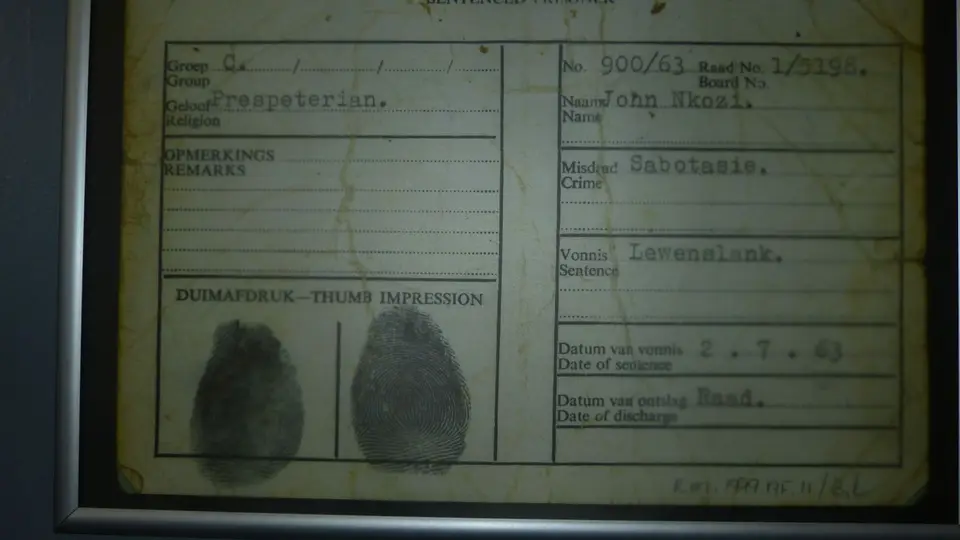 SENTENCED PRISONER
Groep C. / / /
Group
Geloof Prespeterian.
Religion
OPMERKINGS
REMARKS
DUIMAFDRUK—THUMB IMPRESSION
No. 900/63 Raad No. 1/5198.
Board No.
Naam John Nkozi.
Name
Misdaad Sabotasie.
Crime
Vonnis Lewenslank.
Sentence
Datum van vonnis 2 . 7 . 63
Date of sentence
Datum van ontslag Raad.
Date of discharge